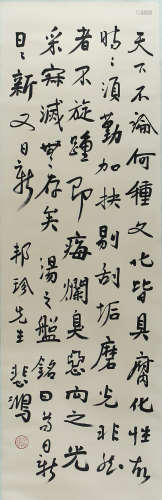 天下不论何種文化皆具腐化性故
時時須勤加抉剔刮垢磨光非然
者不旋踵即痛爛臭惡向之光
采寂滅無存矣湯之盤銘曰苟日新
日日新又日新 邦珍先生 悲鴻